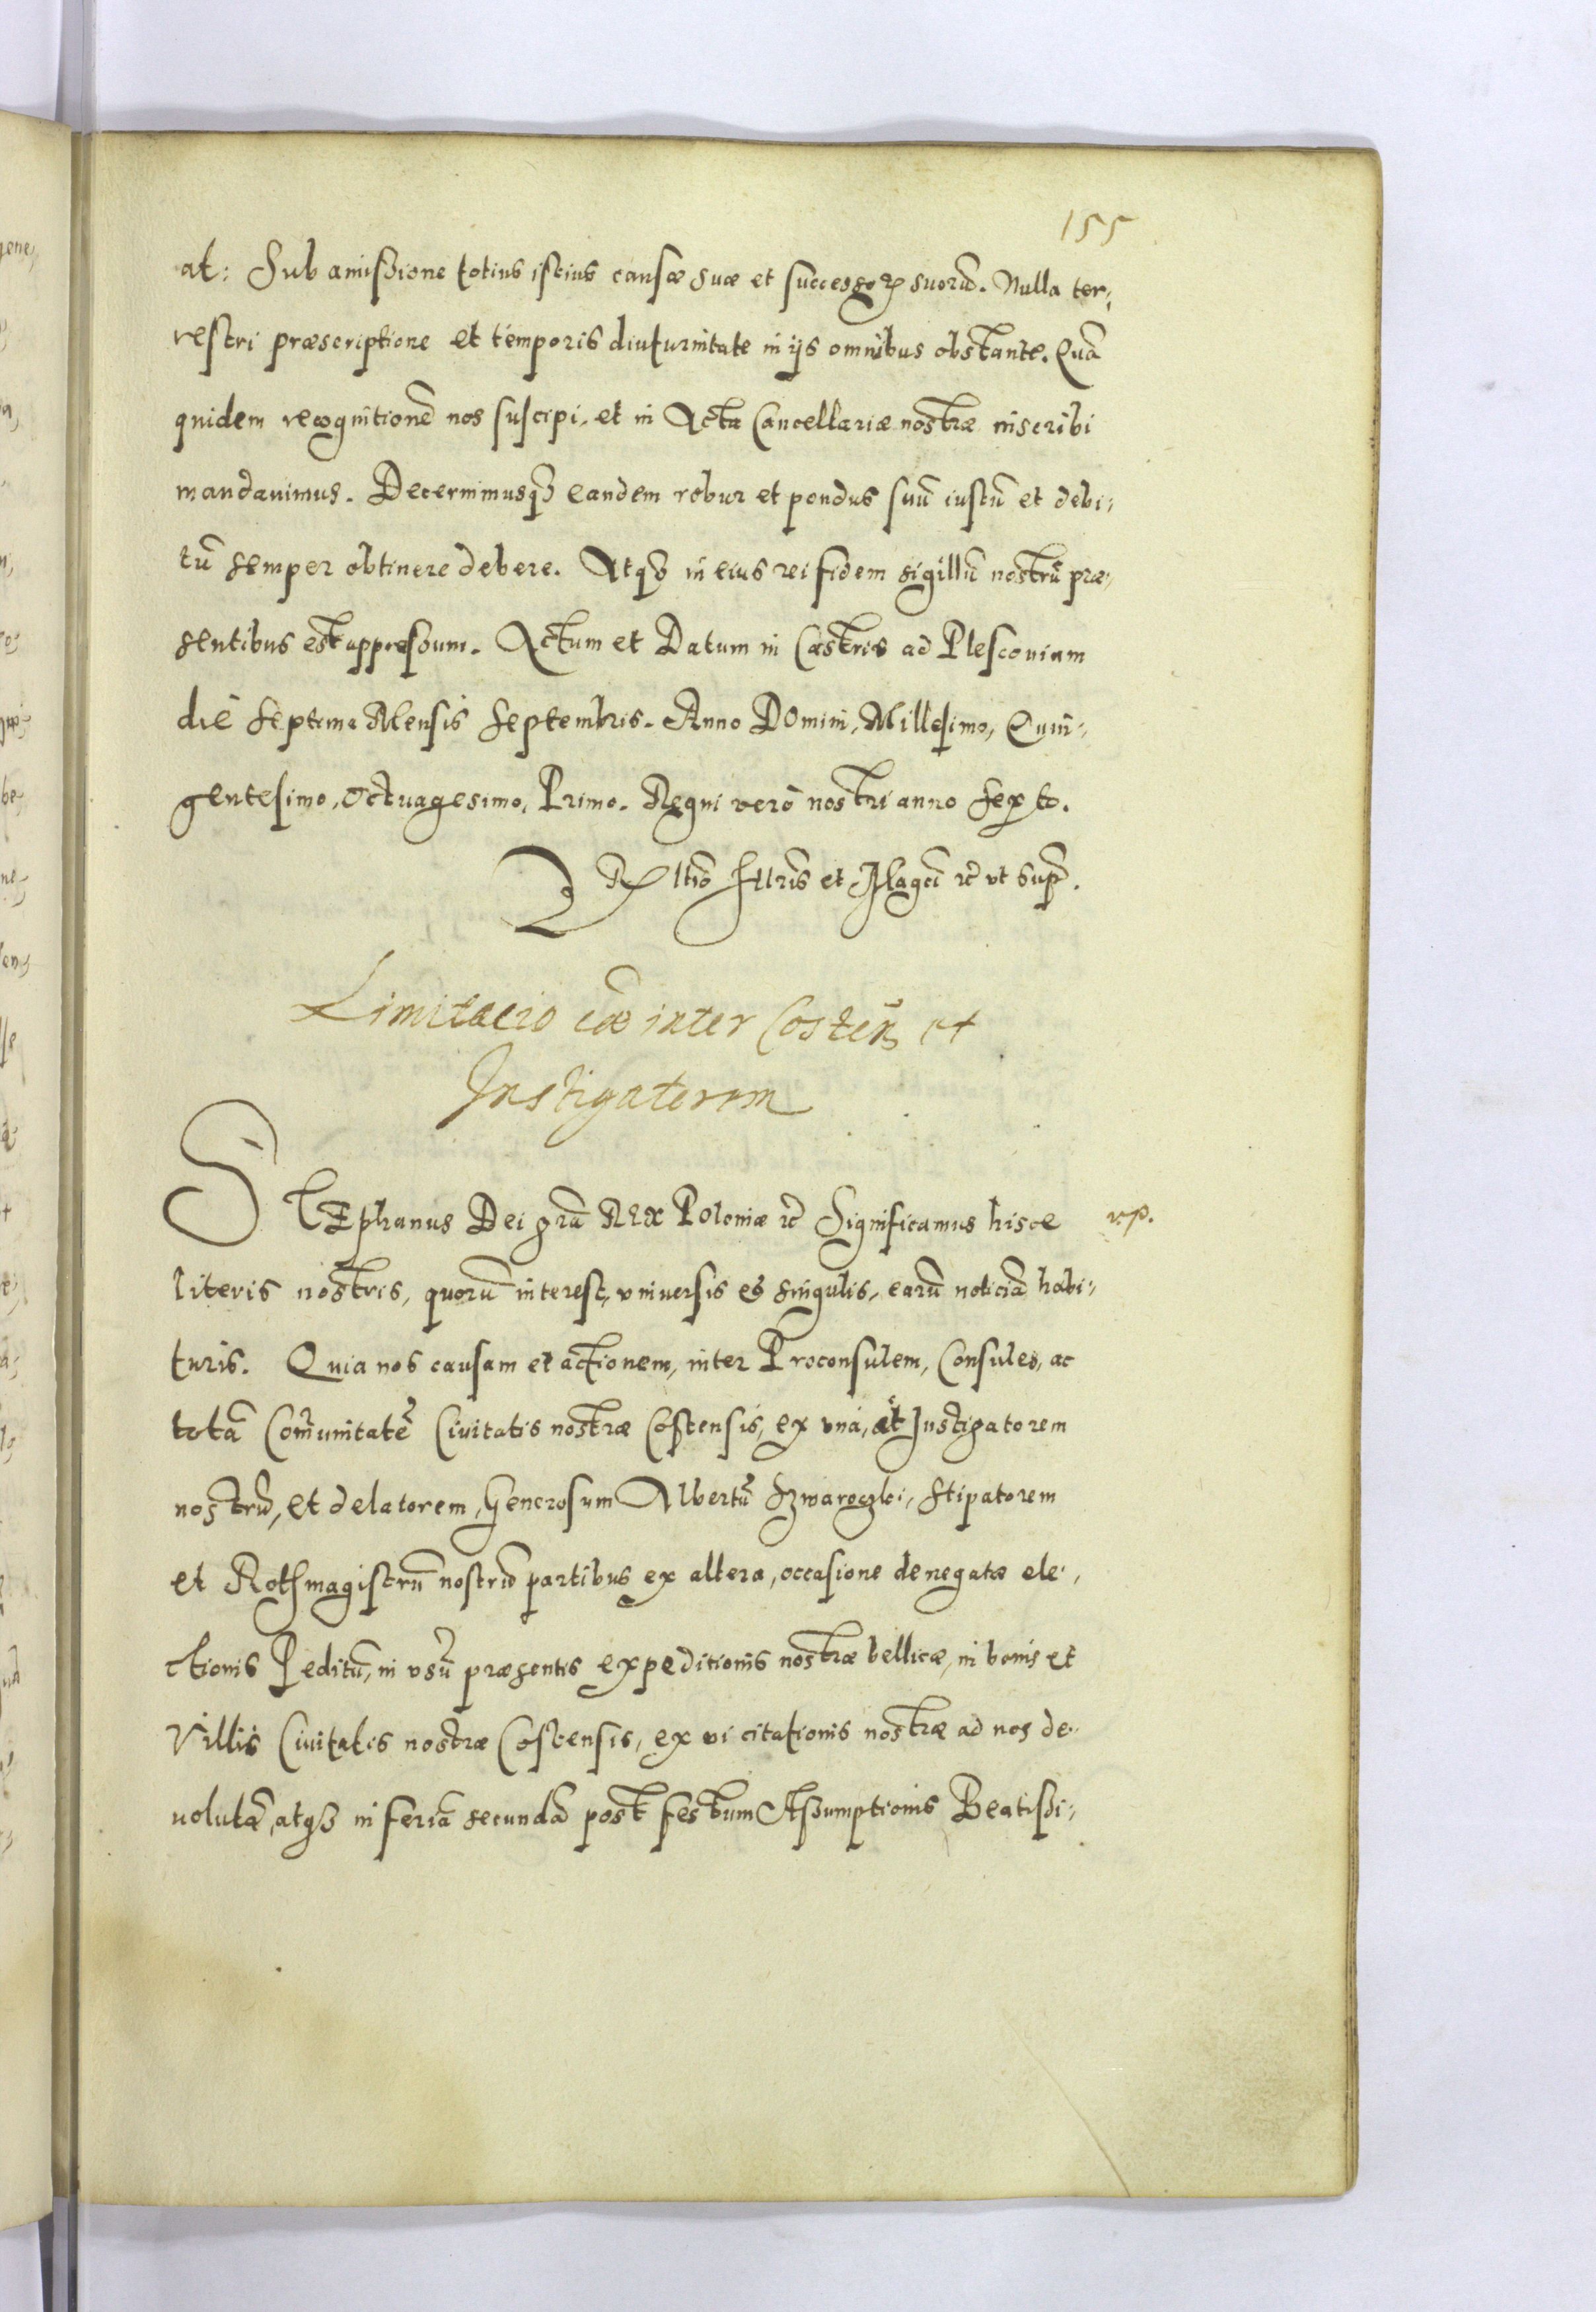 155
at: Sub amissione totius istius causæ suæ et successorꝝ suorũ. Nulla ter,
restri præscriptione et temporis diuturnitate in ijs omnibus obstante. Quã
quidem recognitionẽ nos suscipi, et in Acta Cancellariæ nostræ inscribi
mandauimus. Decernimusqꝫ eandem robur et pondus suũ iustũ et debi,
tũ semper obtinere debere. Atqꝫ in eius rei fidem sigillũ nostrũ præ,
sentibus est appressum. Actum et Datum in Castris ad Plescouiam
die septima Mensis Septembris. Anno Domini, Millesimo, Quin,
gentesimo, Octuagesimo, Primo. Regni verò nostri anno sexto.
Rltio Illris et Magci rc̃ vt supᷓ.
Limitacio cæ inter Costeñ et
Instigatorem
Stephanus Dei grã Rex Poloniæ rc̃ Significamus hisce
rp.
literis nostris, quorũ interest, vniuersis et singulis, earũ noticiã habi,
turis. Quia nos causam et actionem, inter Proconsulem, Consules, ac
totã Com̃unitatẽ Ciuitatis nostræ Costensis, ex vna, et Instigatorem
nostrũ, et delatorem, Generosum Albertũ Stipatorem
et Rothmagistrũ nostrũ partibus ex altera, occasione denegatæ ele,
ctionis Peditũ, in vsũ præsentis expeditionis nostræ bellicæ, in bonis et
Villis Ciuitatis nostræ Costensis, ex vi citationis nostræ ad nos de,
uolutã, atqꝫ in feriã secundã post festum Assumptionis Beatissi,